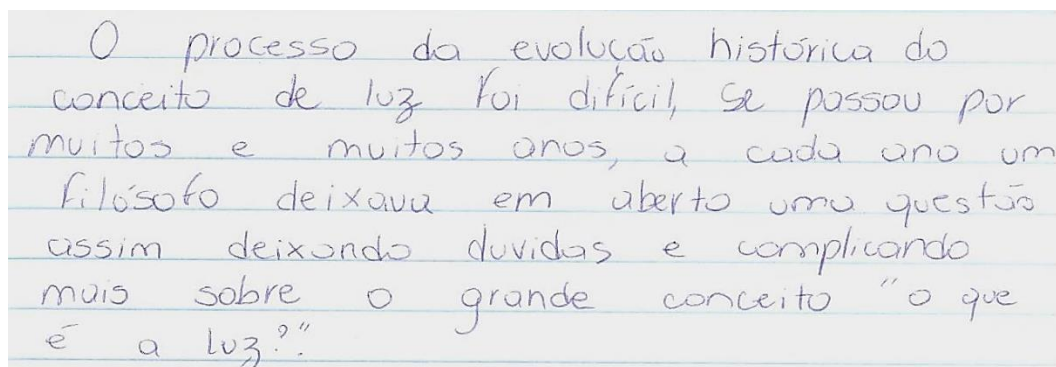 O processo da evolução histórica do
conceito de luz foi difícil, se passou por
muitos e muitos anos, a cada ano um
filósofo deixava em aberto uma questão
assim deixando duvidas e complicando
mais sobre o grande conceito "o que
é a luz?".